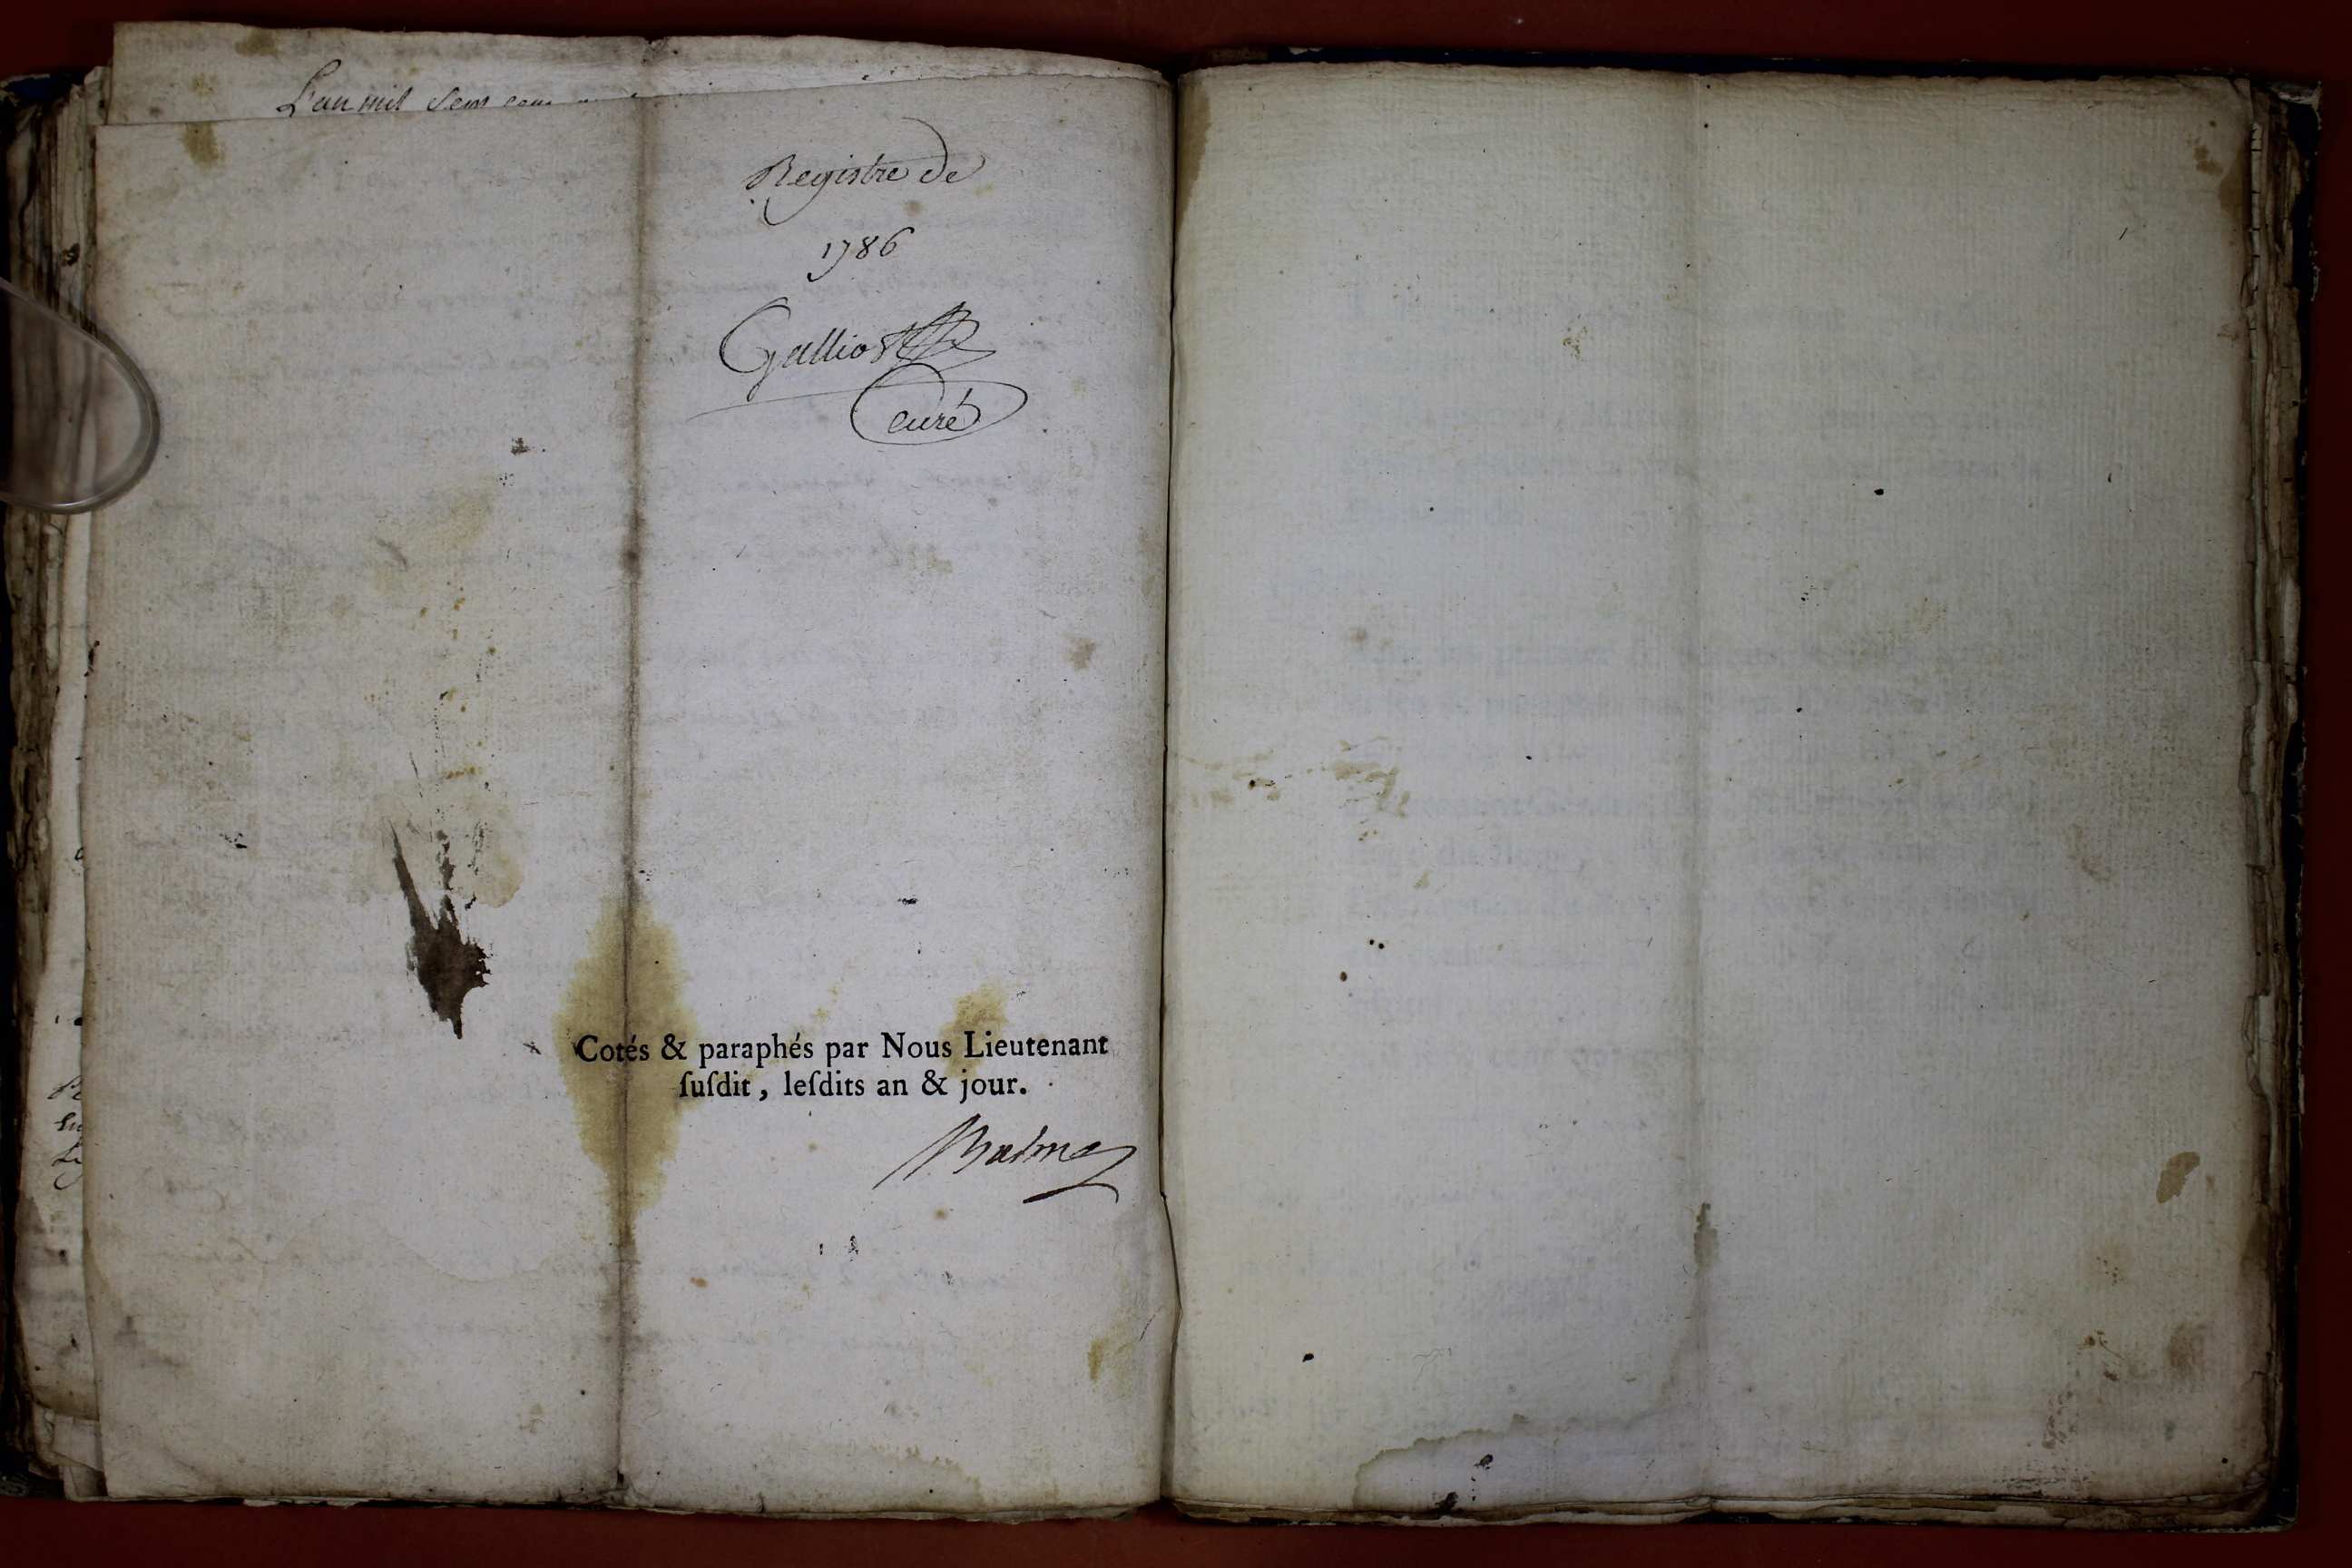 L'an mil sept cent
Registre de
1786
Galliot
curé
Cotés & paraphés par Nous Lieutenant
ſuſdit, leſdits an & jour.